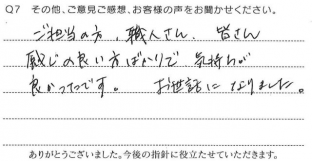 Q7 その他、ご意見ご感想、お客様の声をお聞かせください。
ご担当の方、職人さん、皆さん
感じの良い方ばかりで 気持ちが
良かったです。 お世話になりました。
ありがとうございました。今後の指針に役立たせていただきます。